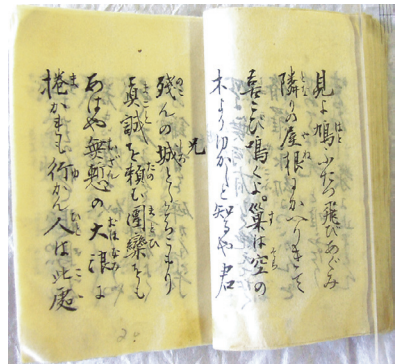 見よ鳩ふたつ飛びあぐみ
隣りの屋根にかへりきて
喜こび鳴くよ。巣は空の
木より しと知るや君
兄
残んの城と こもり
真誠を頼む團欒をも
あはや無慙の大浪よ
捲か も行かん人は此處